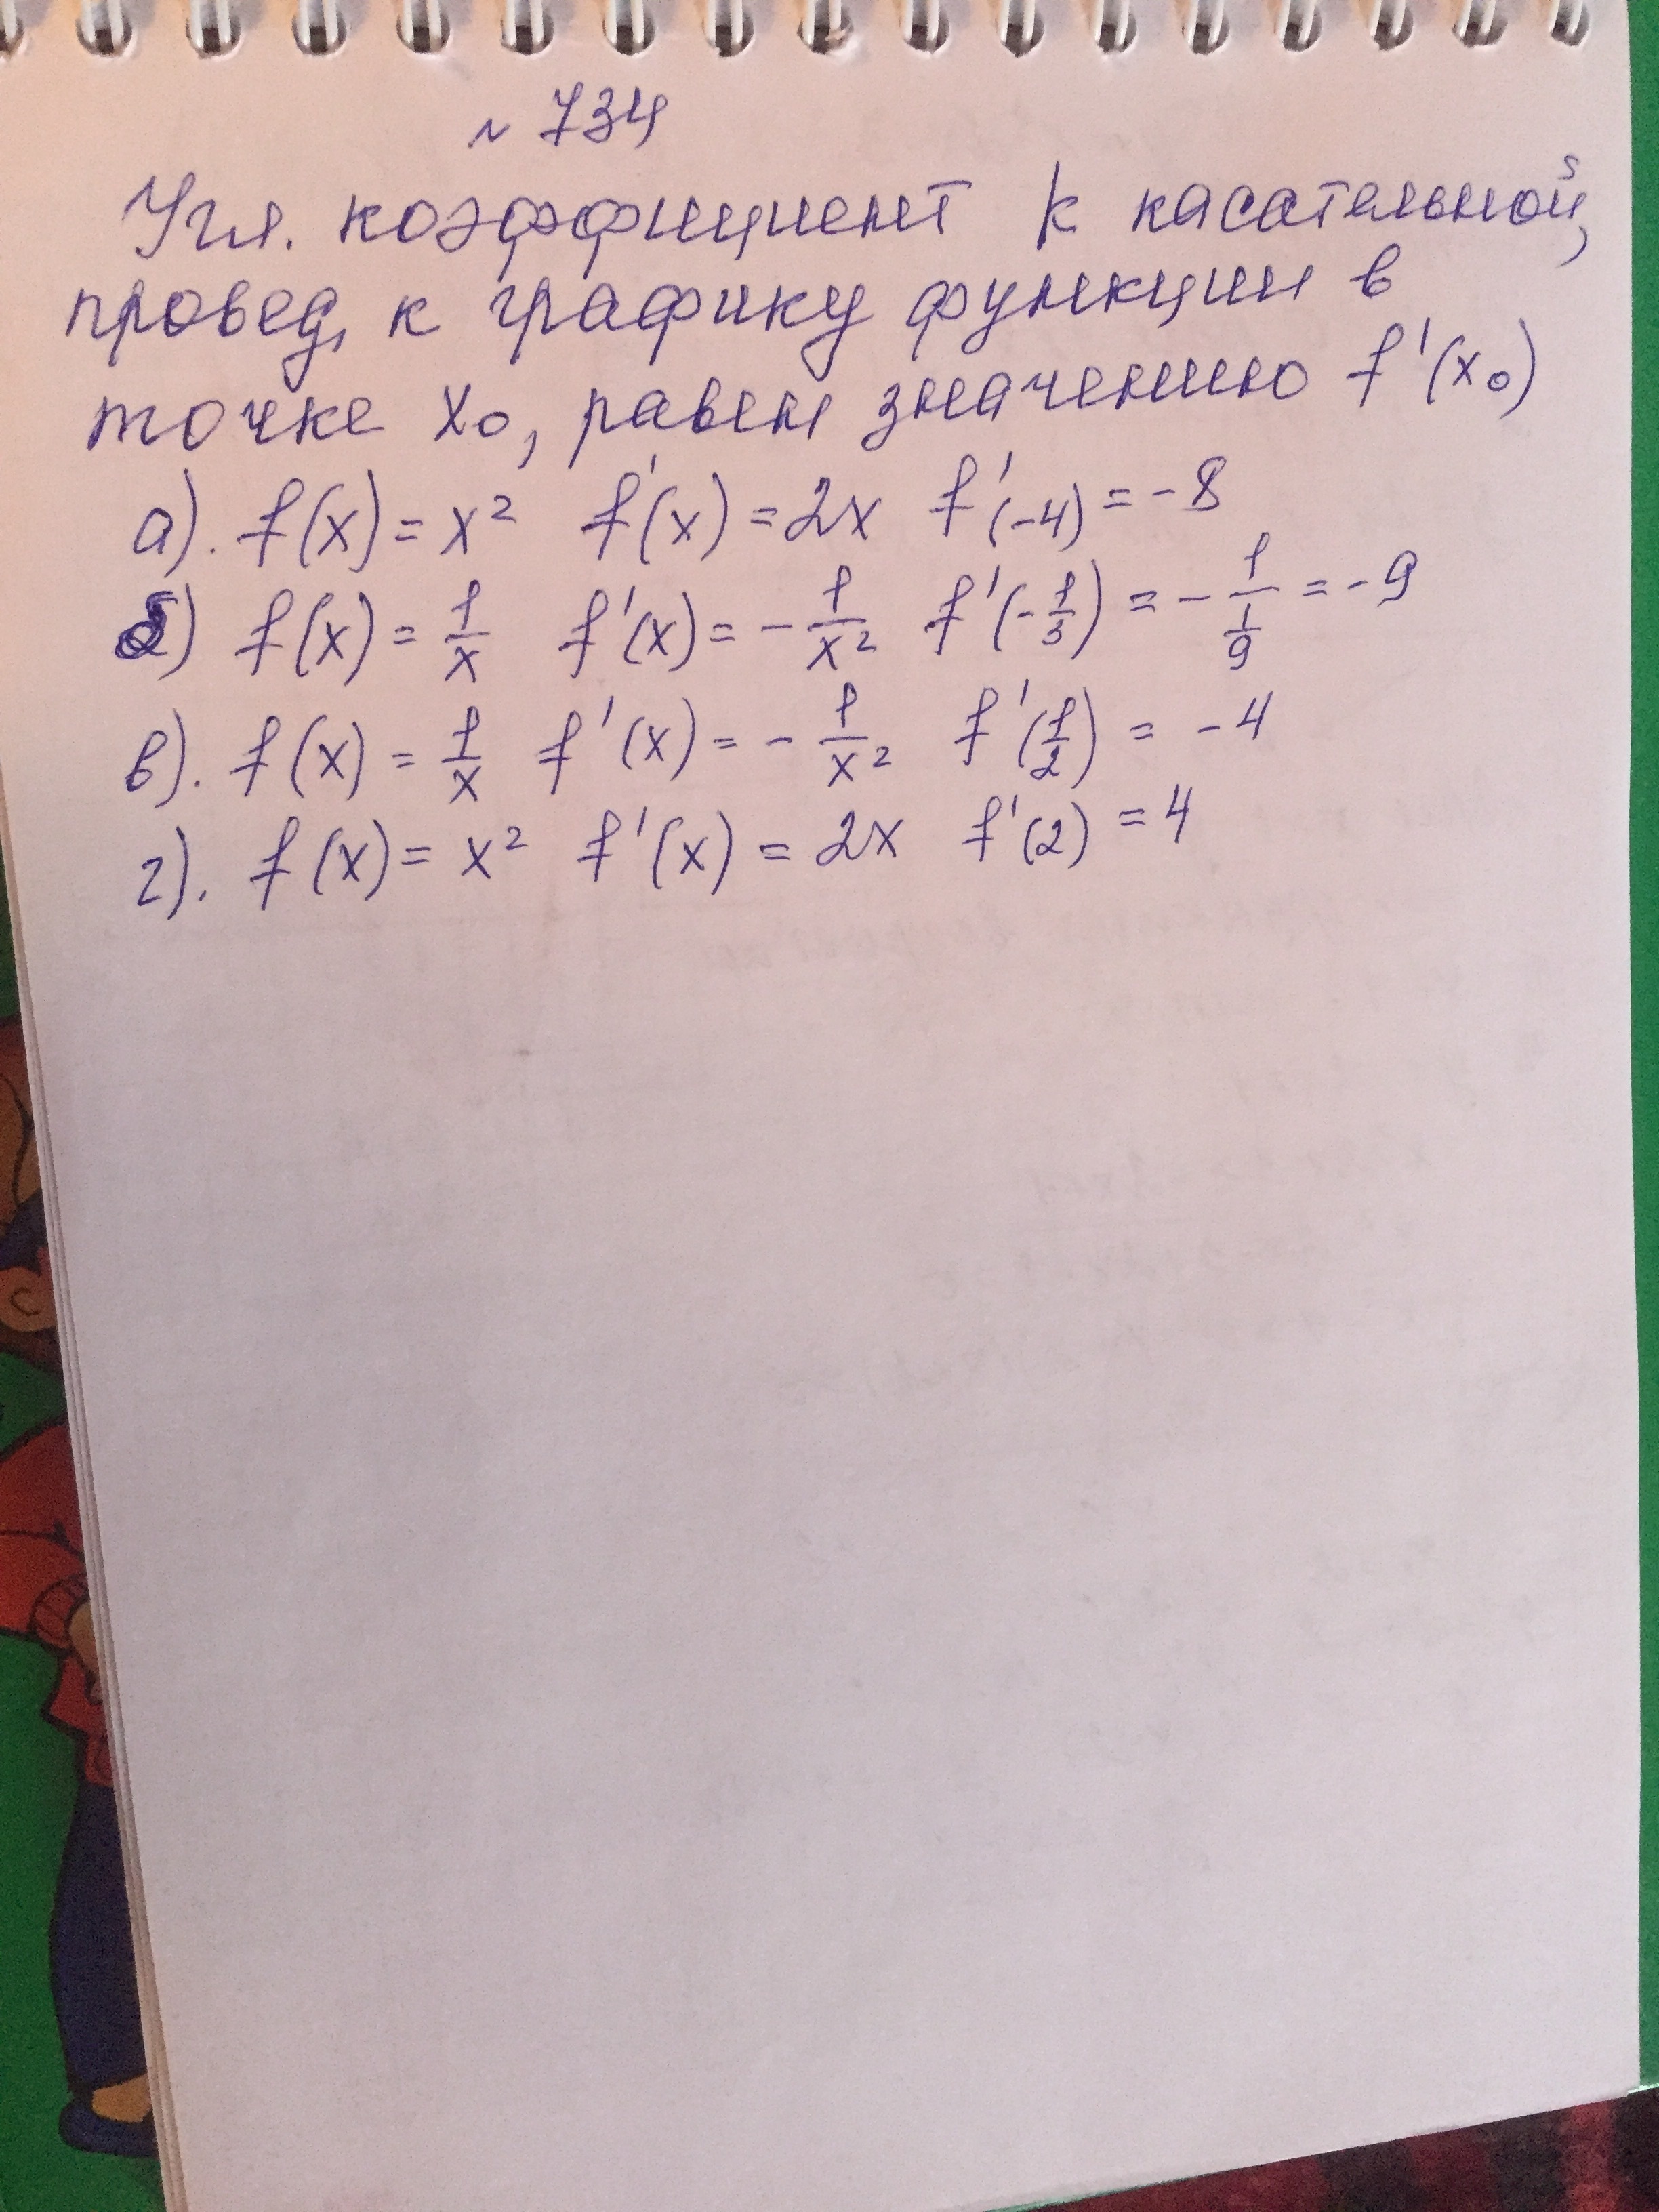 № 734
Угл. коэффициент k касательной,
провед. к графику функции в
точке x₀, равен значению f'(x₀)
а). f(x) = x² f'(x) = 2x f'(-4) = -8
б) f(x) = 1/x f'(x) = -1/x² f'(-1/3) = -1/(1/9) = -9
в). f(x) = 1/x f'(x) = -1/x² f'(1/2) = -4
г). f(x) = x² f'(x) = 2x f'(2) = 4